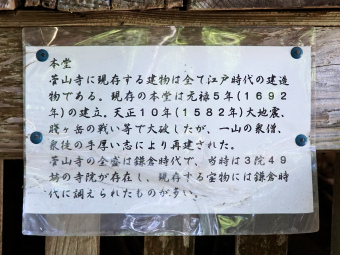 本堂
菅山寺に現存する建物は全て江戸時代の建造
物である。現存の本堂は元禄5年(1692
年)の建立。天正10年(1582年)大地震、
賤ヶ岳の戦い等で大破したが、一山の衆僧、
衆徒の手厚い志により再建された。
菅山寺の全盛は鎌倉時代で、当時は3院49
坊の寺院が存在し、現存する宝物には鎌倉時
代に調えられたものが多い。